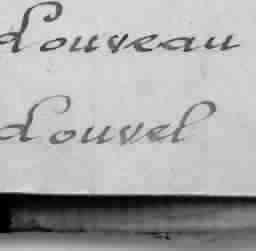 Louveau
Louvel